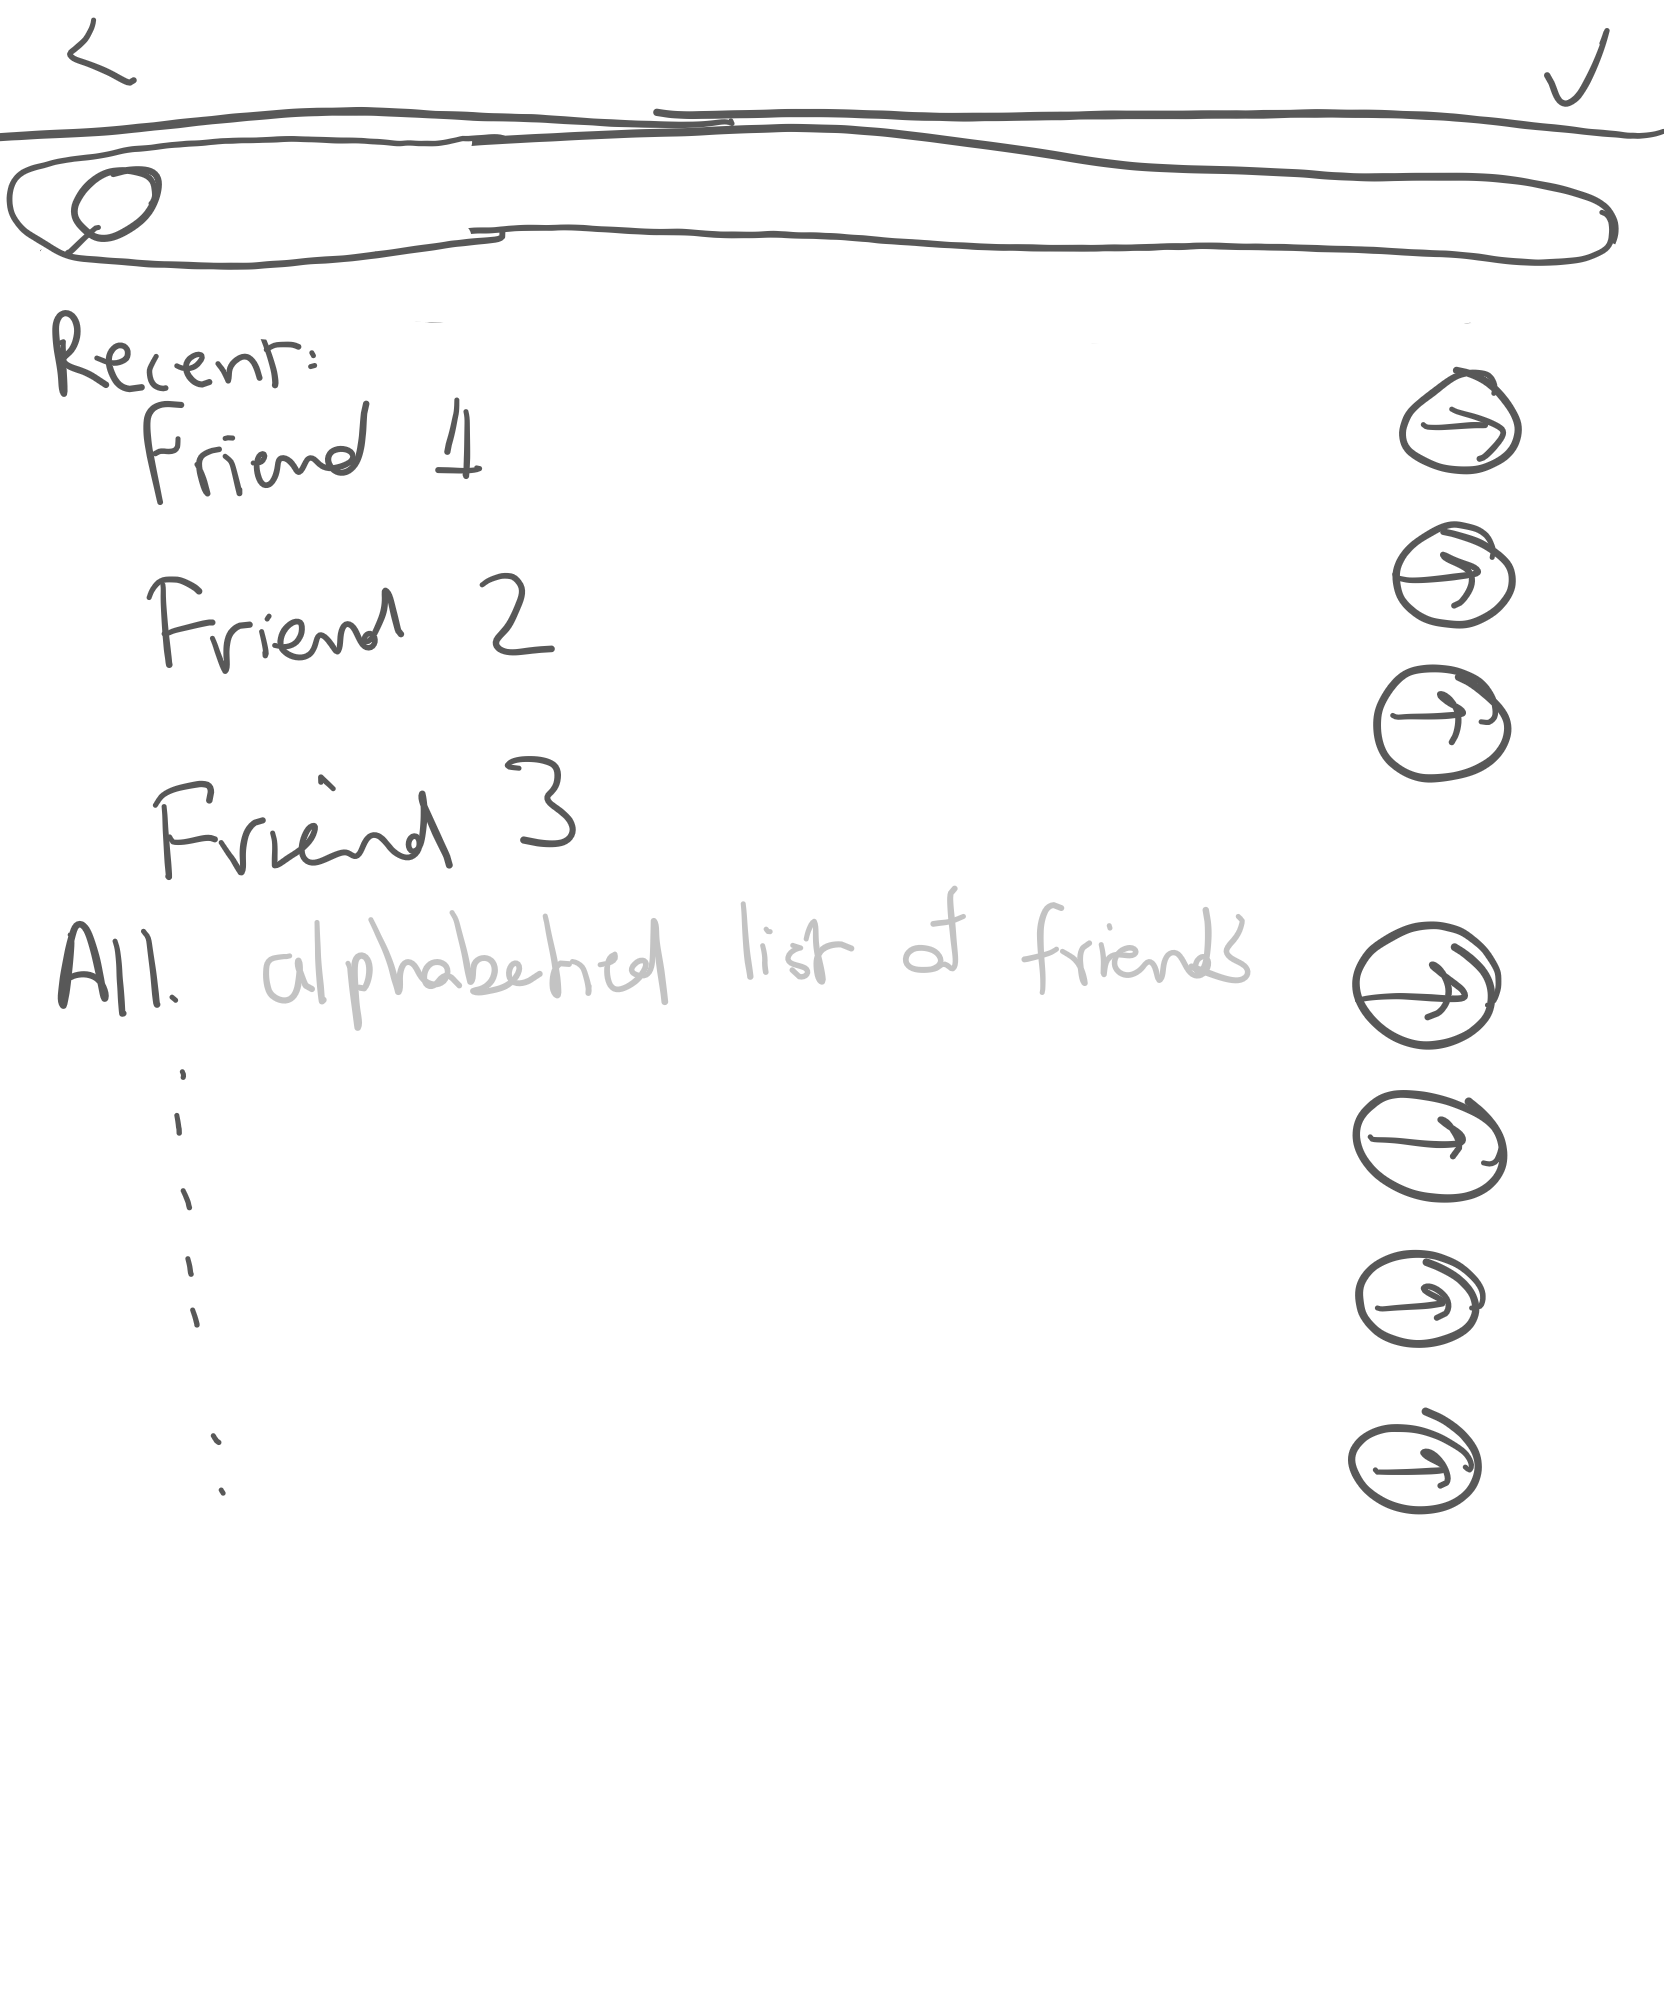 Recent:
Friend 1
Friend 2
Friend 3
All: alphabetical list of friends